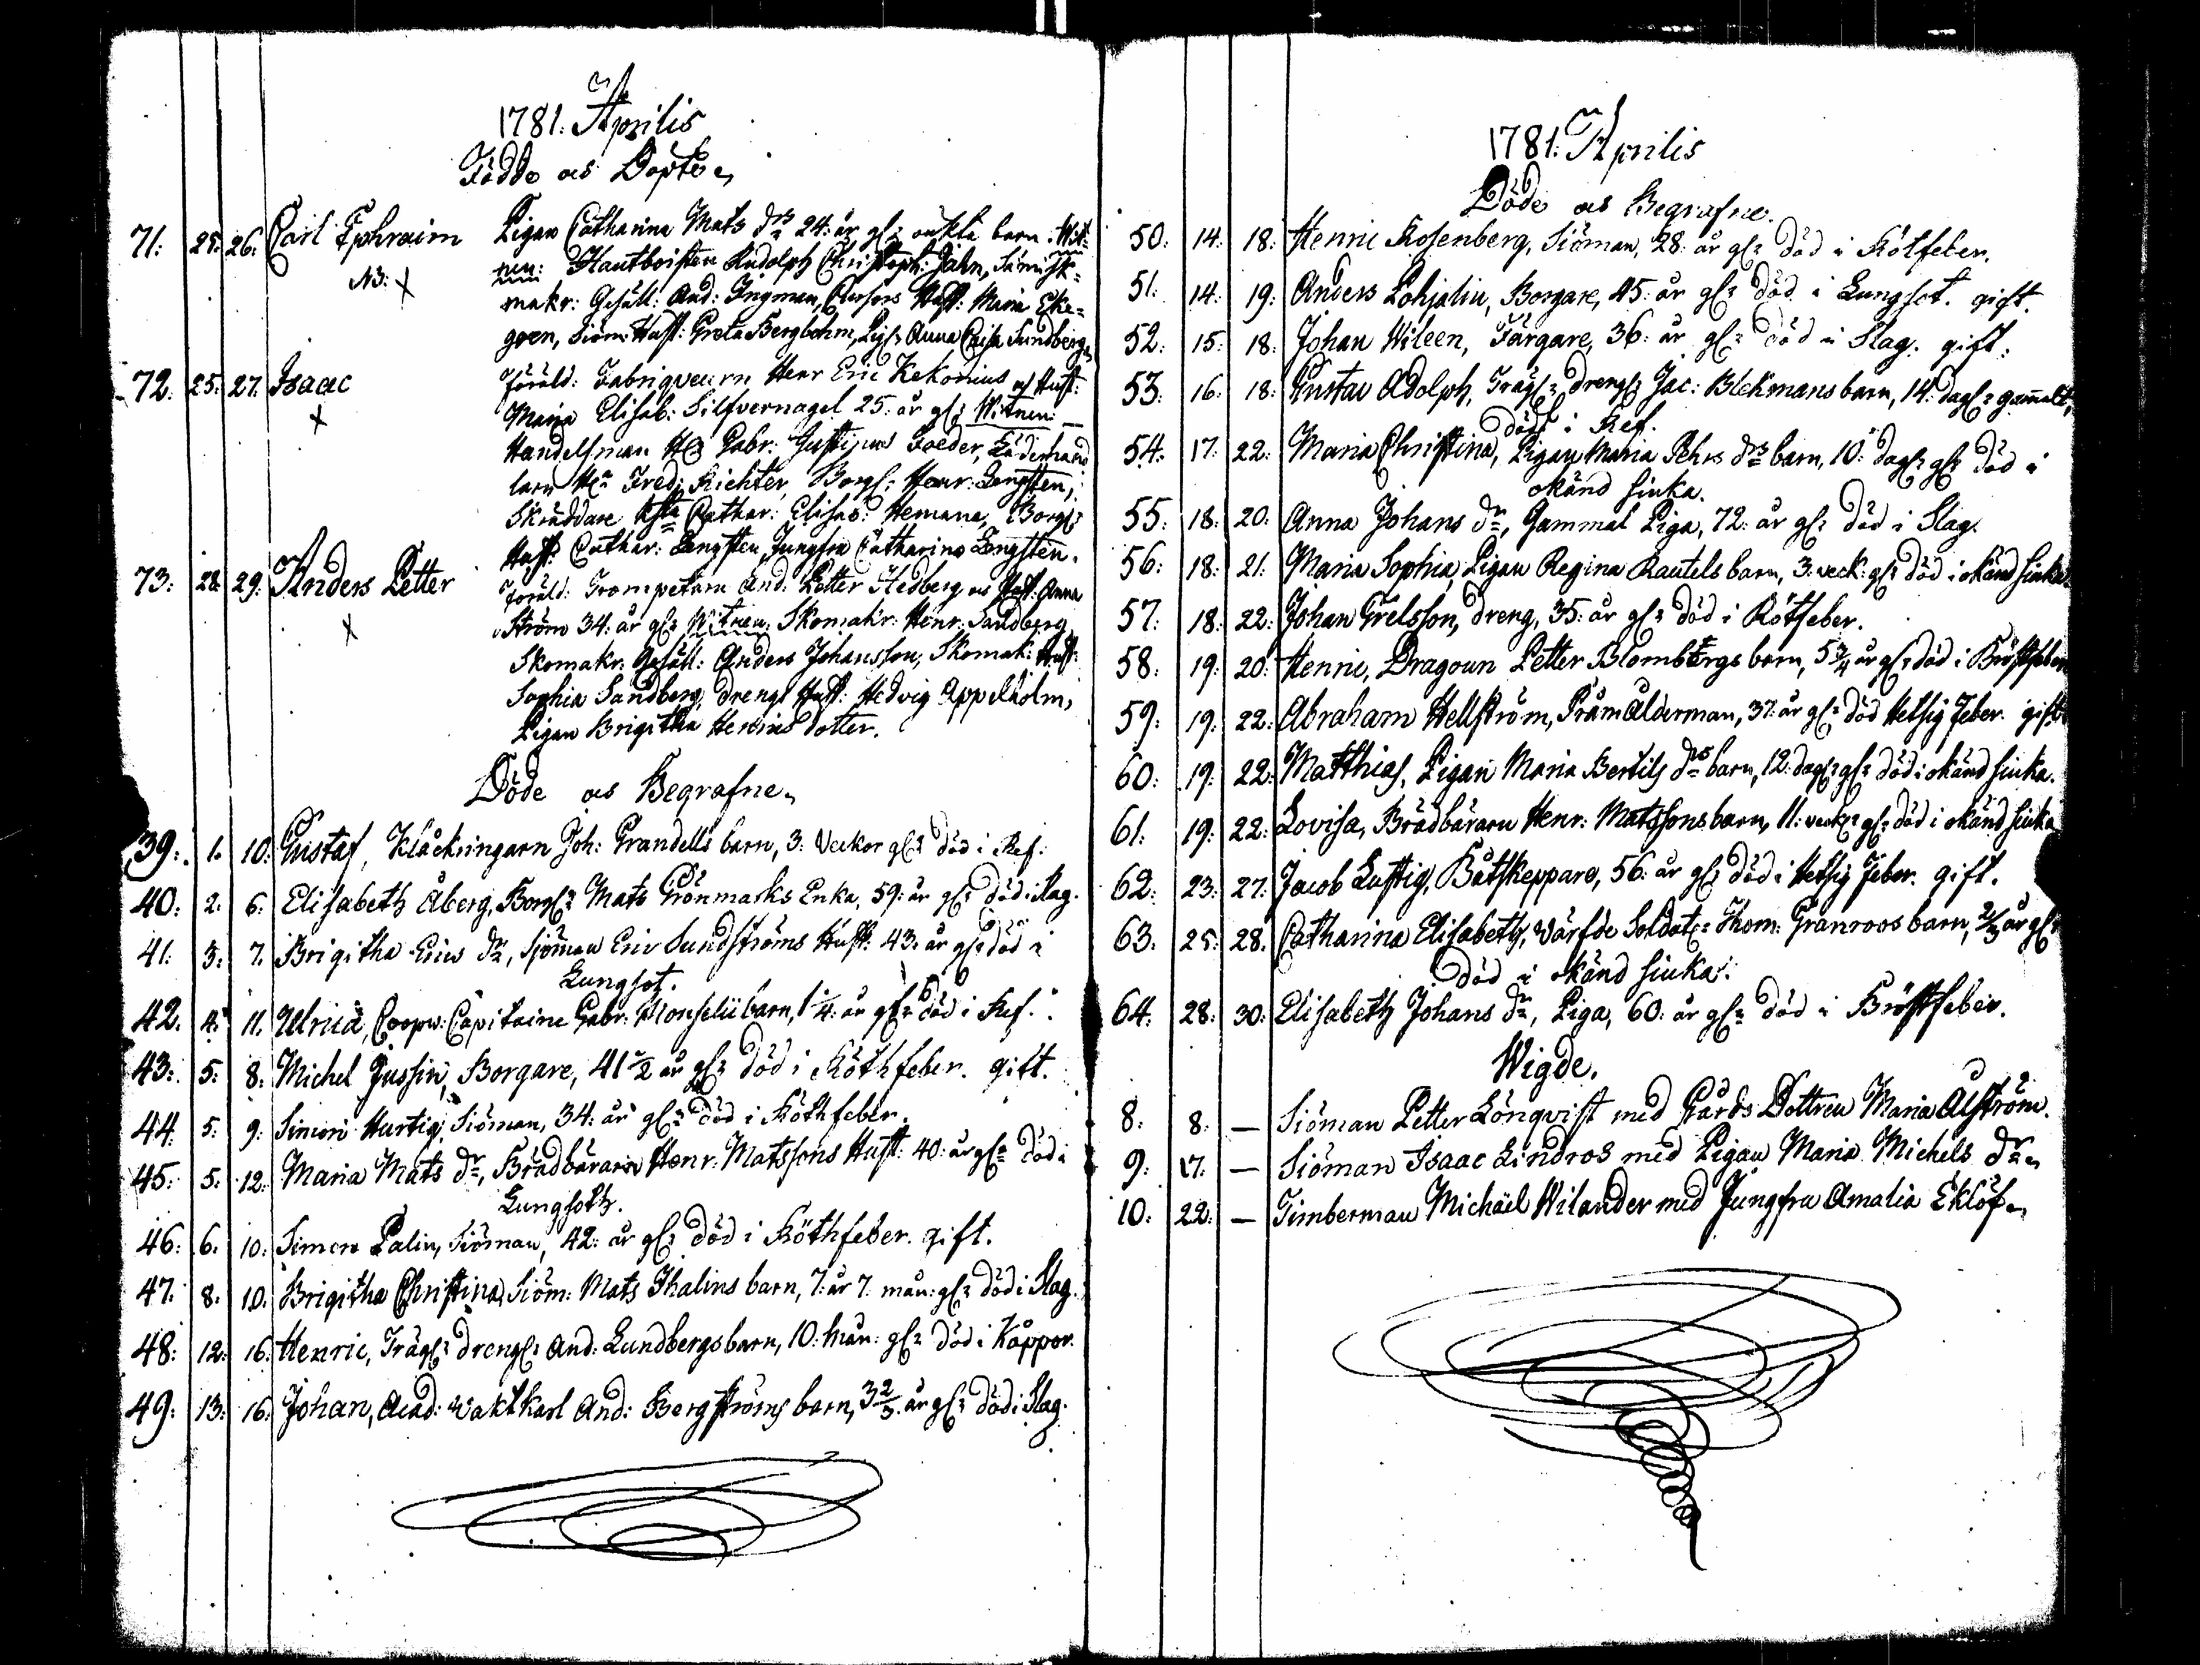 1781. Aprilis
Födde as Döpte
71: 25: 26: Carl Ephraim Pigan Catharina Mats dr 24: år gl: barn. Wit-
N3: X nen: Hautboisten Rudolph Christoph: Jahn,
makr: Gesäll: And: Ingman, Hust: Maria Eke-
gren, Siöm: Hust: Greta Bergbohm, Pig: Anna Caisa Sundberg
72. 25: 27. Isaac Föräld: Fabriqveurn Herr Eric Kekonius as Hust:
X Maria Elisab: Silfvernagel 25: år gl: Witnen:
Handelsman Hr Gabr: Loeder,
larn Hr Fred: Richter, Borg: Henr: Lengsten,
Skräddare Cathar: Elisab: Hemana, Borg:
Hust: Cathar: Lengsten, Jungfru Catharina Lengsten.
73: 28. 29: Anders Petter Föräld: Trompetarn And: Petter Hedberg as Hust: Anna
X Ström 34: år gl: Witnen: Skomakr: Henr: Sandberg
Skomakr: Gesäll: Anders Johansson, Skomak: Hust:
Sophia Sandberg, Drengs Hust: Hedvig Appelholm,
Pigan Brigitha Henrics dotter.
Döde as Begrafne
39: 1. 10: Gustaf, Klåckringarn Joh: Grandells barn, 3: Veckor gl: död i Ref:
40: 2. 6: Elisabeth Åberg, Borg: Mats Grönmarks Enka, 59: år gl: död i Slag.
41: 3: 7. Brigitha Erics dr, Sjöman Eric Sundströms Hust: 43: år gl: död i
Lungsot.
42. 4: 11. Ulrica, Coopv: Capitaine Gabr: Monselii barn, 1 1/4: år gl: död i Ref:
43: 5: 8: Michel Jussin, Borgare, 41 1/2 år gl: död i Röthfeber. gift.
44: 5: 9: Simon Hurtig, Siöman, 34: år gl: död i Röthfeber.
45: 5: 12: Maria Mats dr, Brädbärarn Henr: Matssons Hust: 40: år gl: död i
Lungsoth.
46: 6. 10: Simon Palin, Siöman, 42: år gl: död i Röthfeber. gift.
47. 8. 10. Brigitha Christina, Siöm: Mats Thalins barn, 7: år 7. mån: gl: död i Slag.
48: 12: 16. Henric, Trägl: Drengl: And: Lundbergs barn, 10: mån: gl: död i Kåppor.
49: 13: 16: Johan, Acad: Vaktkarl And: Bergströms barn, 3 2/3 år gl: död i Slag.
1781. Aprilis
Döde as Begrafne.
50: 14: 18: Henric Rosenberg, Siöman, 28: år gl: död i Rötfeber.
51: 14: 19: Anders Lohjalin, Borgare, 45: år gl: död i Lungsot. gift.
52: 15: 18: Johan Wileen, Färgare, 36: år gl: död i Slag. gift.
53: 16: 18: Gustav Adolph, Trägl: Drengl: Jac: Blekmans barn, 14: dagl: gammalt,
död i Ref.
54: 17: 22: Maria Christina, Pigan Maria Pehrs dr barn, 10: dagl: gl: död i
okänd siuka.
55: 18: 20: Anna Johans dr, Gammal Piga, 72: år gl: död i Slag.
56: 18: 21: Maria Sophia, Pigan Regina Rautels barn, 3: veck: gl: död i okänd siuka.
57: 18: 22: Johan Grelsson, dreng, 35: år gl: död i Rötfeber.
58: 19: 20: Henric, Dragoun Petter Blombergs barn, 5 3/4 år gl: död i Bröstfeber
59: 19: 22: Abraham Hellström, Pråm Ålderman, 37: år gl: död Hetsig Feber. gift.
60: 19: 22: Matthias, Pigan Maria Bertils drs barn, 12: dagl: gl: död i okänd siuka.
61: 19: 22: Lovisa, Brädbärarn Henr: Matssons barn, 11: veckr gl: död i okänd siuka
62: 23: 27: Jacob Lustig, Båtskeppare, 56: år gl: död i Hetsig Feber. gift.
63: 25: 28: Catharina Elisabeth, Värfde Soldat: Thom: Granroos barn, 2/3 år gl:
död i okänd siuka.
64: 28: 30: Elisabeth Johans dr, Piga, 60: år gl: död i Bröstfeber.
Wigde.
8: 8: — Siöman Petter Lönqvist med Gårds Dottren Maria Alström.
9: 17. — Siöman Isaac Lindros med Pigan Maria Michels dr
10: 22: — Timberman Michäel Wilander med Jungfru Amalia Eklöf